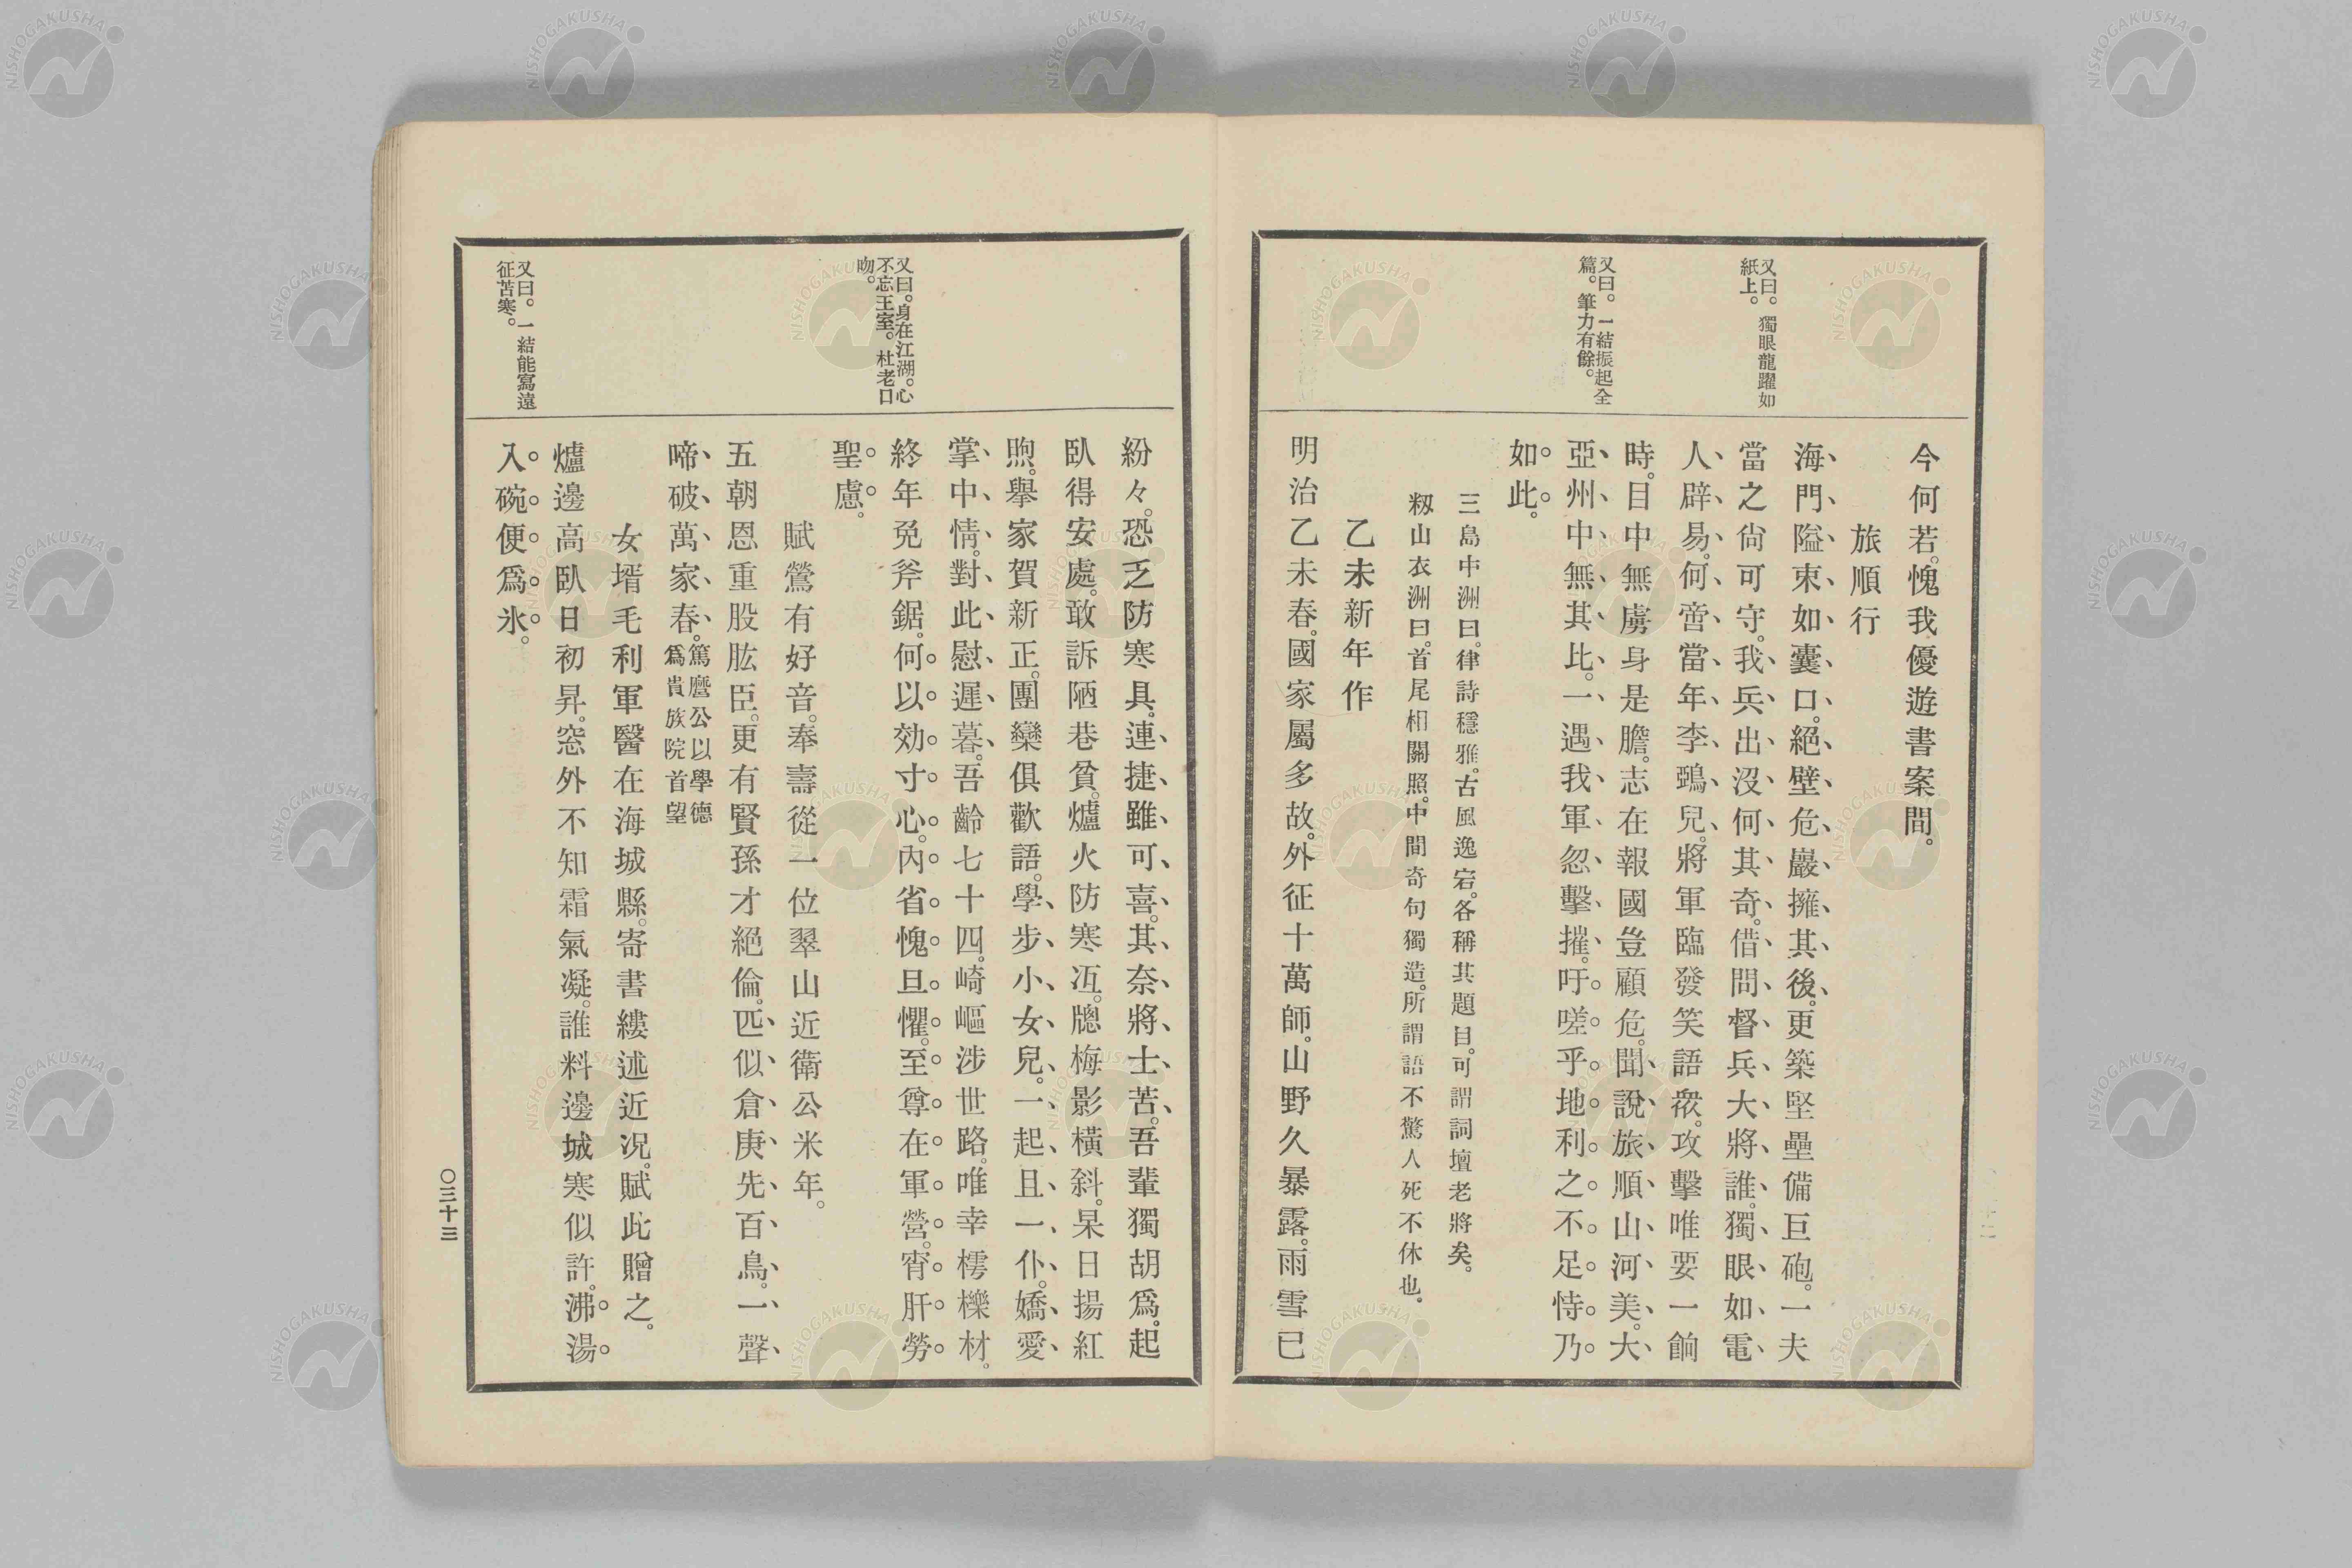 又曰。獨眼龍躍如
紙上。
又曰。一結振起全
篇。筆力有餘。
今何若。愧我優遊書案間。
旅順行
海門隘束如囊口。絕壁危巖擁其後。更築堅壘備巨砲。一夫
當之尙可守。我兵出沒何其奇。借問督兵大將誰。獨眼如電
人辟易。何啻當年李鵶兒。將軍臨發笑語衆。攻擊唯要一餉
時。目中無虜身是膽。志在報國豈顧危。聞說旅順山河美。大
亞州中無其比。一遇我軍忽擊摧。吁嗟乎地利之不足恃乃
如此。
三島中洲曰。律詩穩雅。古風逸宕。各稱其題目。可謂詞壇老將矣。
籾山衣洲曰。首尾相關照。中間奇句獨造。所謂語不驚人死不休也。
乙未新年作
明治乙未春。國家屬多故。外征十萬師。山野久暴露。雨雪已
又曰。身在江湖。心
不忘王室。杜老口
吻。
又曰。一結能寫遠
征苦寒。
紛々。恐乏防寒具。連捷雖可喜。其奈將士苦。吾輩獨胡爲。起
臥得安處。敢訴陋巷貧。爐火防寒冱。牕梅影橫斜。杲日揚紅
煦。擧家賀新正。團欒俱歡語。學步小女兒。一起且一仆。嬌愛
掌中情。對此慰遲暮。吾齡七十四。崎嶇涉世路。唯幸樗櫟材。
終年免斧鋸。何以効寸心。內省愧且懼。至尊在軍營。宵肝勞
聖慮。
賦鶯有好音。奉壽從一位翠山近衛公米年。
五朝恩重股肱臣。更有賢孫才絕倫。匹似倉庚先百鳥。一聲
啼破萬家春。篤麿公以學德
爲貴族院首望
女壻毛利軍醫在海城縣。寄書縷述近況。賦此贈之。
爐邊高臥日初昇。窓外不知霜氣凝。誰料邊城寒似許。沸湯
入碗便爲氷。
〇三十三
NISHOGAKUSHA